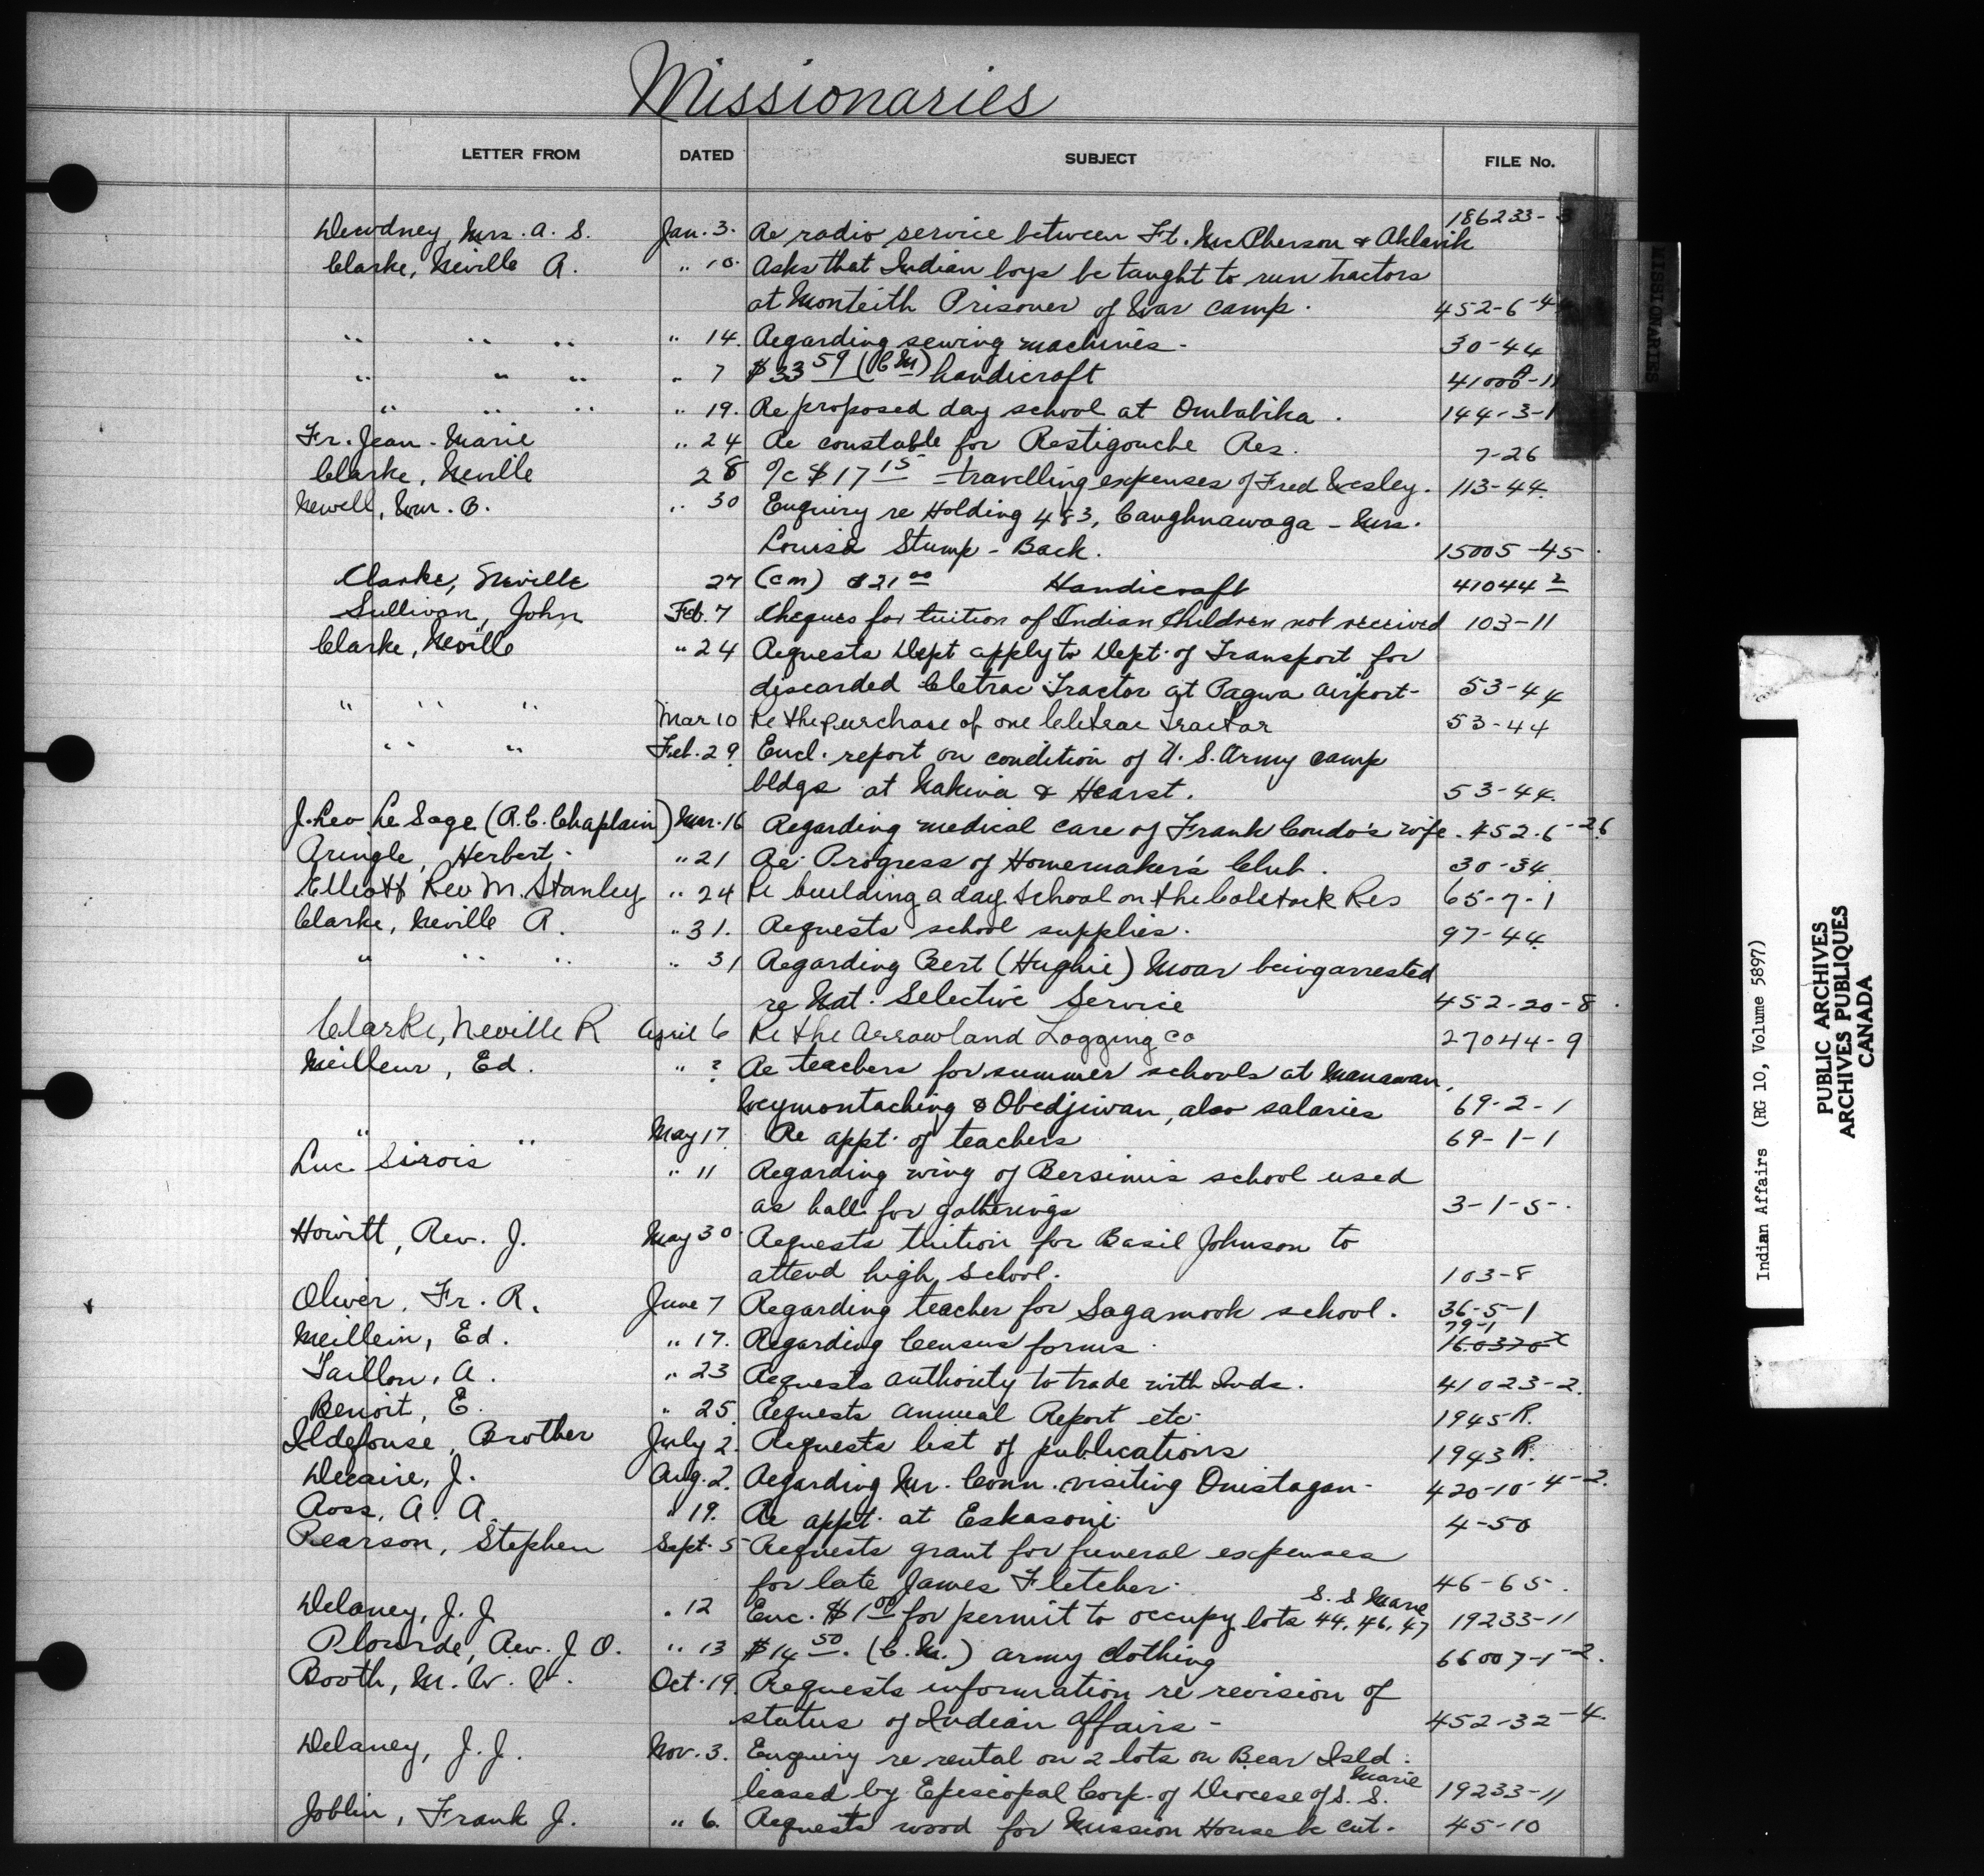 Missionaries
LETTER FROM DATED SUBJECT FILE No.
186233-
Dewdney, Mrs. A. S. Jan. 3. Re radio service between Ft. McPherson & Aklavik
Clarke, Neville A. " 10. Asks that Indian boys be taught to run tractors
at Monteith Prisoner of War camp. 452-6-44
" " " " 14. Regarding sewing machines. 30-44
" " " " 7 $33 59 (C M) handicraft 41000 A-11
" " " " 19. Re proposed day school at Ombabika. 144-3-1
Fr. Jean-Marie " 24 Re constable for Restigouche Res. 7-26
Clarke, Neville 28 a/c $17 15 - travelling expenses of Fred Wesley. 113-44.
Newell, Wm. B. " 30 Enquiry re Holding 483, Caughnawaga - Mrs.
Louisa Stump-Back. 15005-45.
Clarke, Neville 27 (cm) $21 00 Handicraft 41044 2
Sullivan, John Feb. 7 Cheques for tuition of Indian Children not received 103-11
Clarke, Neville " 24 Requests Dept apply to Dept. of Transport for
discarded Cletrac Tractor at Pagwa airport- 53-44
" " " Mar 10 Re the purchase of one Cletrac Tractor 53-44
" " " Feb. 29. Encl. report on condition of U.S. Army camp
bldgs at Nakina & Hearst. 53-44.
J. Leo Le Sage (R.C. Chaplain) Mar. 16 Regarding medical care of Frank Condo's wife. 452.6-26
Pringle, Herbert. " 21 Re Progress of Homemaker's Club. 30-34.
Elliott Rev M. Stanley " 24 Re building a day School on the Calstock Res 65-7-1
Clarke, Neville R. " 31. Requests school supplies. 97-44.
" " " " 31 Regarding Bert (Hughie) Moar being arrested
re Nat. Selective Service 452-20-8.
Clarke, Neville R April 6 Re the Arrowland Logging Co 27044-9
Meilleur, Ed. " ? Re teachers for summer schools at Manawan,
Weymontaching & Obedjiwan, also salaries 69-2-1
" " May 17 Re appt. of teachers 69-1-1
Luc Sirois " 11 Regarding wing of Bersimis school used
as hall for gatherings 3-1-5-.
Howitt, Rev. J. May 30 Requests tuition for Basil Johnson to
attend high school. 103-8
Oliver, Fr. R. June 7 Regarding teacher for Sagamook school. 36-5-1
79-1
Meillein, Ed. " 17. Regarding Census forms. 160370 x
Taillon, A. " 23 Requests authority to trade with Inds. 41023-2.
Benoit, E. " 25. Requests Annual Report etc. 1945 R.
Ildefonse, Brother July 2. Requests list of publications 1943 R.
Decaire, J. Aug. 2. Regarding Mr. Conn visiting Ouistagan. 420-10-4-2.
Ross, A. A. " 19. Re appt. at Eskasoni. 4-50
Pearson, Stephen Sept. 5 Requests grant for funeral expenses
for late James Fletcher. 46-65.
S. S Marie
Delaney, J. J. " 12 Enc. $1 00 for permit to occupy lots 44, 46, 47 19233-11
Plourde, Rev. J O. " 13 $14 50. (C.M.) army clothing 66007-1-2.
Booth, M. W. V. Oct. 19. Requests information re revision of
status of Indian Affairs- 452-32-4.
Delaney, J. J. Nov. 3. Enquiry re rental on 2 lots on Bear Isld.
Marie
leased by Episcopal Corp. of Diocese of S. S. 19233-11
Joblin, Frank J. " 6. Requests wood for Mission House be cut. 45-10
MISSIONARIES
Indian Affairs (RG 10, Volume 5897)
PUBLIC ARCHIVES
ARCHIVES PUBLIQUES
CANADA